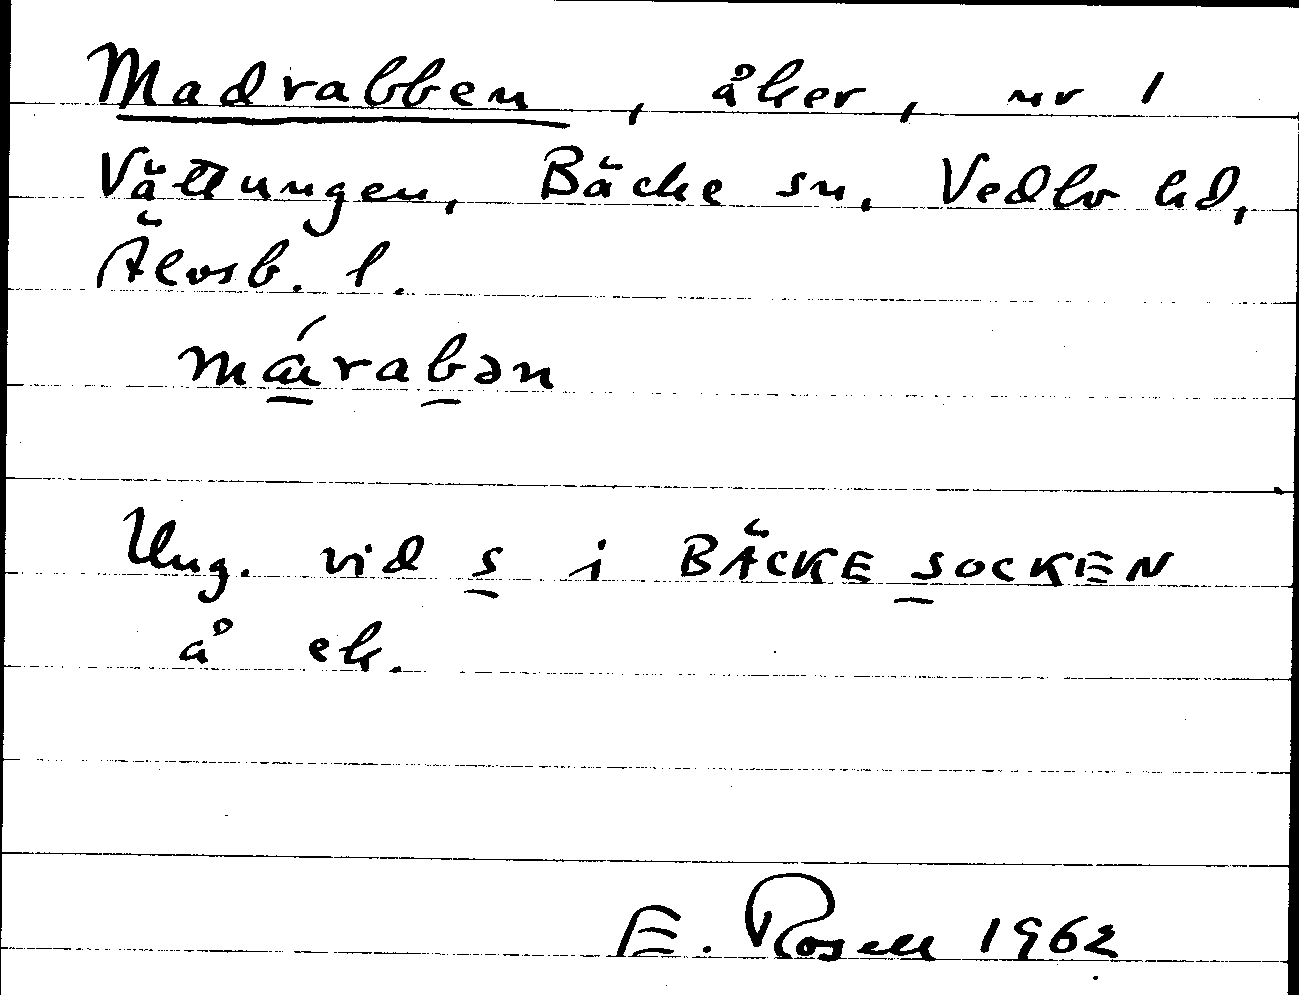 Madrabben, åker, nr 1
Vättungen, Bäcke sn, Vedbo hd,
Älvsb. l.
márabən
Ung. vid s i BÄCKE SOCKEN
å ek.
E. Rosell 1962